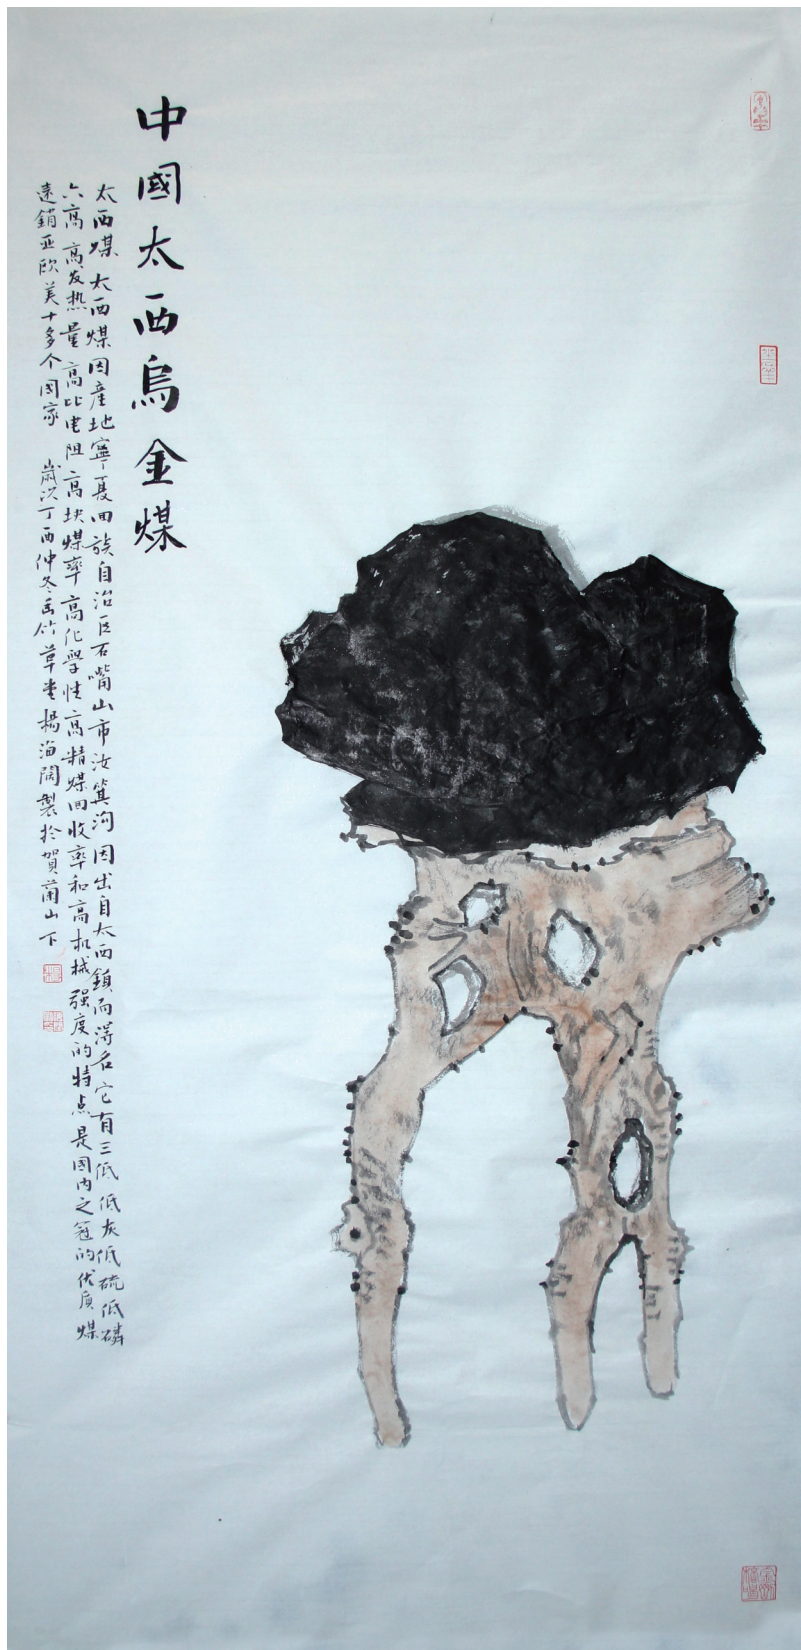 中國太西烏金煤
太西煤太西煤因産地寧夏回族自治区石嘴山市汝箕沟因出自太西鎮而得名它有三低低灰低硫低磷
六高高发热量高比电阻高块煤率高化學性高精煤回收率和高机械强度的特点是國内之冠的优质煤
遠銷亚欧美十多个國家 歲次丁酉仲冬岳竹草堂楊海闊製於賀蘭山下